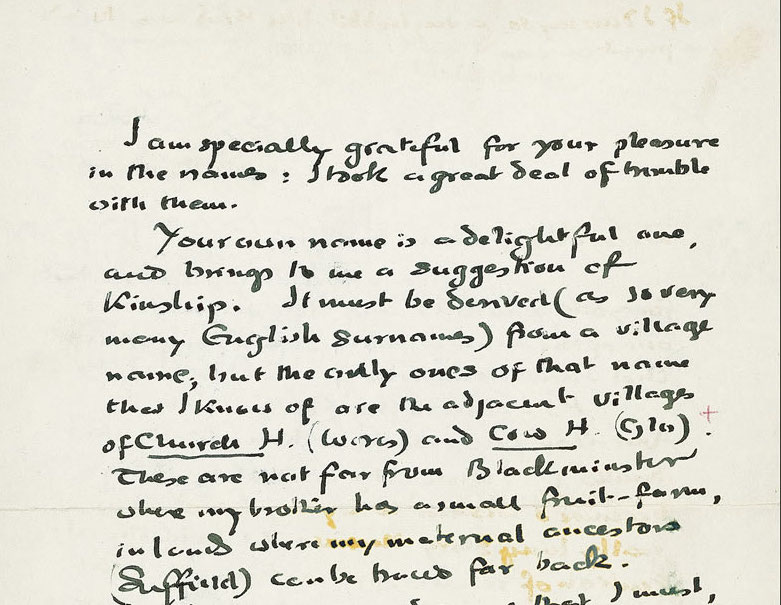 I am specially grateful for your pleasure
in the names : I took a great deal of trouble
with them.
Your own name is a delightful one,
and brings to me a suggestion of
Kinship. It must be derived (as so very
many English surnames) from a village
name, but the only ones of that name
that I know of are the adjacent villages
of Church H. (Worcs) and Cow H. (Glos) . +
These are not far from Blackminster
where my brother has a small fruit-farm,
in land where my maternal ancestors
(Suffield) can be traced far back.
that I must,